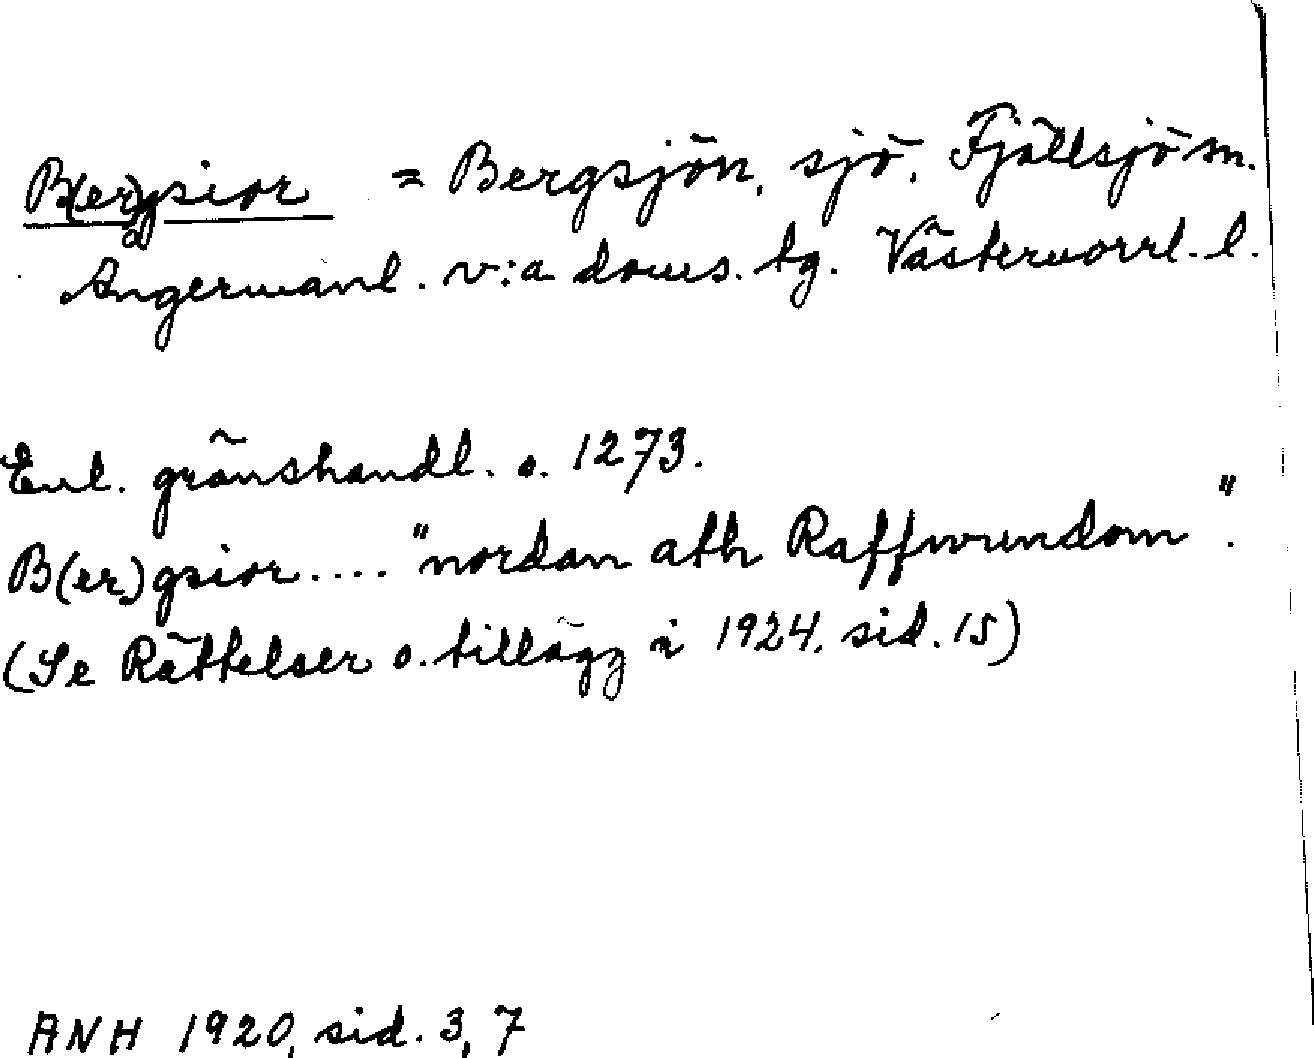 B(er)gsior = Bergsjön, sjö, Fjällsjö sn.
Ångermanl. v:a doms. tg. Västernorrl. l.
Enl. gränshandl. o. 1273.
B(er)gsior.... "nordan ath Raffwundom".
(Se Rättelser o. tillägg i 1924, sid. 15)
ANH 1920, sid. 3, 7